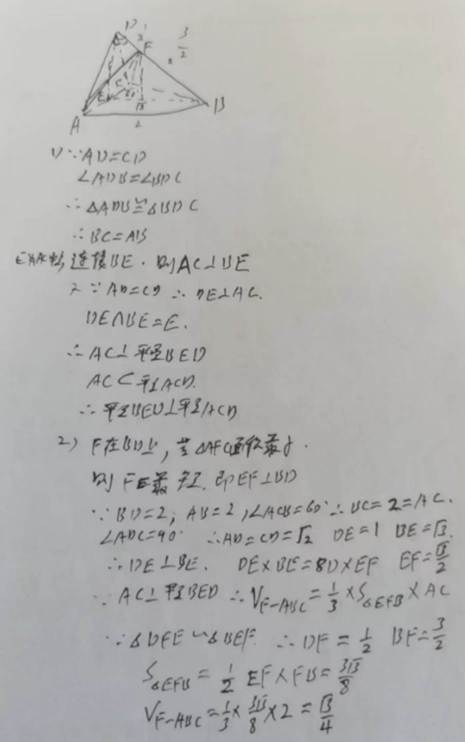 D
1/2
F
3/2
E
A
B
2
1) ∵AD=CD
∠ADB=∠BDC
∴△ADB≌△BDC
∴BC=AB
E为AC中点,连接BE.则AC⊥BE
又∵AD=CD ∴DE⊥AC.
DE∩BE=E.
∴AC⊥平面BED
AC⊂平面ACD.
∴平面BED⊥平面ACD
2) F在BD上,当△AFC面积最小.
则FE最短,即EF⊥BD
∵BD=2, AB=2,∠ACB=60° ∴BC=2=AC.
∠ADC=90° ∴AD=CD=√2 DE=1 BE=√3.
∴DE⊥BE. DE×BE=BD×EF EF=√3/2
∵AC⊥平面BED ∴V_{F-ABC}=1/3×S_{△EFB}×AC
∵△DFE∽△BEF. ∴DF=1/2 BF=3/2
S_{△EFB}=1/2 EF×FB=3√3/8
V_{F-ABC}=1/3×3√3/8×2=√3/4